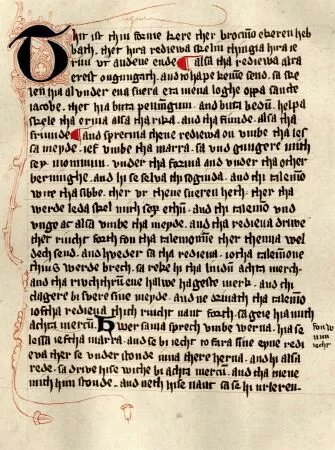 Thit ist thiu forme kere ther brocmo ekeren heb
bath. ther hira rediewa skelin thingia hira ie
rim ur audene ende alsa tha rediewa alra
erest ongungath. and to hape keme send. sa ske
len hia al under ena fuera eta mena loghe oppa sancte
iacobe. ther hia bitta penningum. and buta bedum. helpa
skele tha erma alsa tha rika. and tha fiunde. alsa tha
friunde and sprerma thene rediewa on umbe tha les
sa meyde. ief umbe tha marra. sa undgungere mith
sex monnum. under tha forma and under tha other
and hi se selva thi sogunda. and thi talemon
wite tha sibbe. ther ur thene sueren heth. ther tha
werde leda skel mith sex ethum. and thi talemon und
unge ac alsa umbe tha meyde. and tha rediewa driwe
ther riucht forth fon tha talemonne ther themma wel
dech send. and hweder sa tha rediewa. ioftha talemonne
thius werde brech. sa reke hi tha liudum achta merch
and tha riuchthrum ene halwe hageste merk. and thi
clagere bifuere sine meyde. and ne
iof tha rediewa thich riucht naut forth. sa geie hia mith
achta mercum. Hwersama sprech umbe werna. hia se
lessa ief tha marra. and se bi iecht to fara sine epne redi
eva ther se under stonde inna there herna. and hi alsa
rede. sa driwe hise withe bi achta mercum. and tha mene
mith him stonde. and neth hise naut sa se hi urleren.
iecht